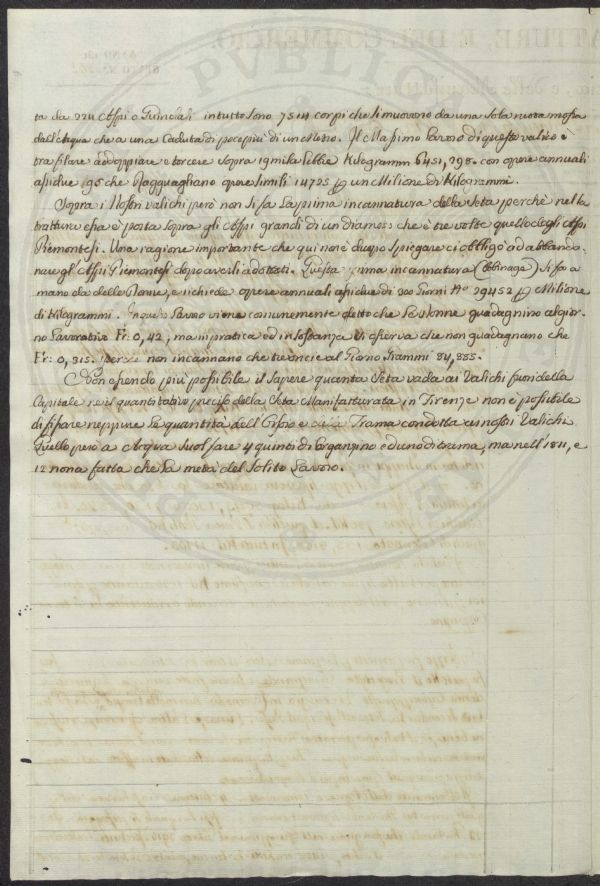 ta da 224 Aspi o Guindali in tutto sono 7514 corpi che si muovono da una sola ruota mossa
dall'Acqua che a una Caduta di poco più di un Metro. Il Massimo Lavoro di questo valico è
tra filare addoppiare e torcere sopra 19 mila libbre Kilogrammi 6451,298. con opere annuali
assidue 95 che Ragguagliano opere simili 14725 un Milione di Kilogrammi.
Sopra i Nostri valichi però non si fa la prima incannatura della Seta perchè nella
trattura essa è posta sopra gli Aspi grandi di un diametro che è tre volte quello degli Aspi
Piemontesi. Una ragione importante che qui non è duopo spiegare ci obbligò ad abbando-
nare gl'Aspi Piemontesi dopo averli adottati. Questa prima incannatura (Bobinage) si fa a
mano da delle Donne, e richiede opere annuali assidue di 300 Giorni N.o 29452 Milione
di Kilogrammi. In questo Lavoro viene comunemente detto che le donne guadagnino al gior-
no Lavorativo Fr: 0,42, ma in pratica ed in sostanza si osserva che non guadagnano che
Fr: 0,315. perchè non incannano che tre oncie al Giorno Grammi 84,885.
Non essendo più possibile il sapere quanta Seta vada ai Valichi fuori della
Capitale ne il quantitativo preciso della Seta Manifatturata in Firenze non è possibile
di fissare neppure la quantità dell'Orsoio e della Trama condotta ai nostri Valichi
Quello però a Acqua suol fare 4 quinti di Organzino ed uno di trama, ma nell'1811, e
12 non a fatto che la metà del Solito Lavoro.